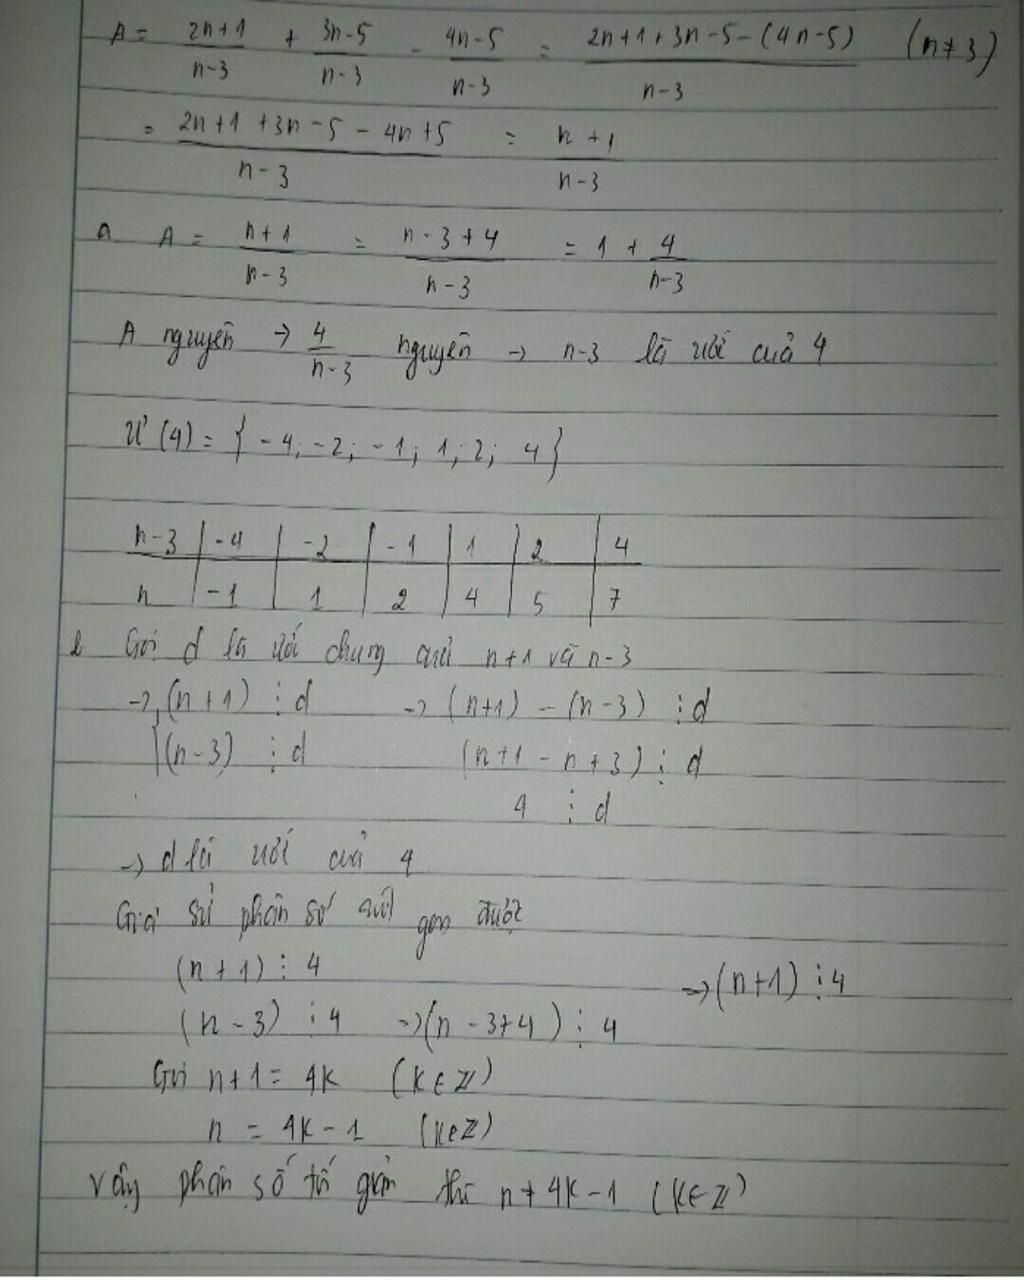 A = \frac{2n+1}{n-3} + \frac{3n-5}{n-3} - \frac{4n-5}{n-3} = \frac{2n+1+3n-5-(4n-5)}{n-3} (n≠3)
= \frac{2n+1+3n-5-4n+5}{n-3} = \frac{n+1}{n-3}
a A = \frac{n+1}{n-3} = \frac{n-3+4}{n-3} = 1 + \frac{4}{n-3}
A nguyên → \frac{4}{n-3} nguyên → n-3 là ước của 4
Ư(4) = { -4; -2; -1; 1; 2; 4 }
n-3 | -4 | -2 | -1 | 1 | 2 | 4
n | -1 | 1 | 2 | 4 | 5 | 7
b Gọi d là ước chung của n+1 và n-3
→ (n+1) ⋮ d → (n+1) - (n-3) ⋮ d
(n-3) ⋮ d (n+1 - n+3) ⋮ d
4 ⋮ d
→ d là ước của 4
Giả sử phân số rút gọn được
(n+1) ⋮ 4 → (n+1) ⋮ 4
(n-3) ⋮ 4 → (n-3+4) ⋮ 4
Gọi n+1 = 4k (k∈Z)
n = 4k-1 (k∈Z)
Vậy phân số tối giản thì n ≠ 4k-1 (k∈Z)